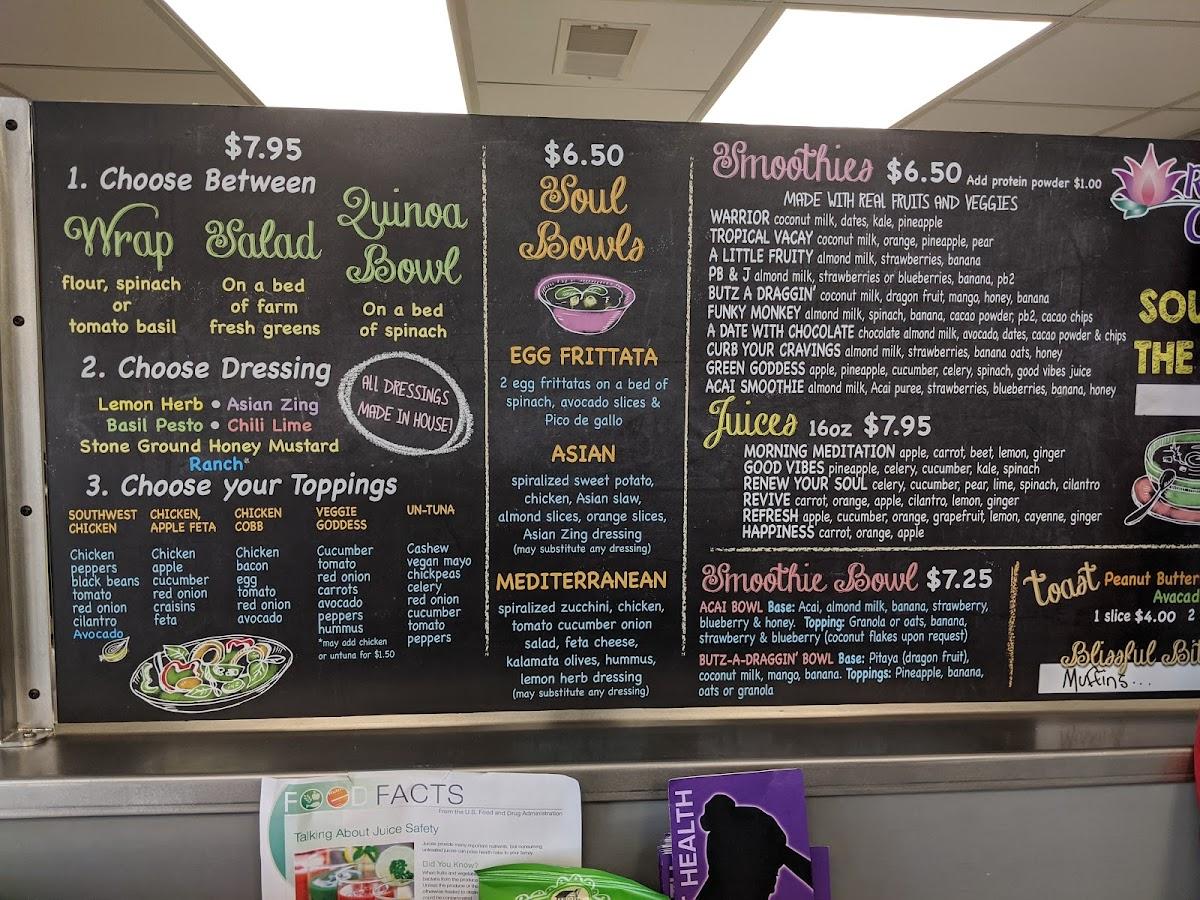 $7.95
1. Choose Between
Wrap
flour, spinach
or
tomato basil
Salad
On a bed
of farm
fresh greens
Quinoa
Bowl
On a bed
of spinach
2. Choose Dressing
Lemon Herb • Asian Zing
Basil Pesto • Chili Lime
Stone Ground Honey Mustard
Ranch*
ALL DRESSINGS
MADE IN HOUSE!
3. Choose your Toppings
SOUTHWEST
CHICKEN
Chicken
peppers
black beans
tomato
red onion
cilantro
Avocado
CHICKEN,
APPLE FETA
Chicken
apple
cucumber
red onion
craisins
feta
CHICKEN
COBB
Chicken
bacon
egg
tomato
red onion
avocado
VEGGIE
GODDESS
Cucumber
tomato
red onion
carrots
avocado
peppers
hummus
*may add chicken
or untuna for $1.50
UN-TUNA
Cashew
vegan mayo
chickpeas
celery
red onion
cucumber
tomato
peppers
$6.50
Soul
Bowls
EGG FRITTATA
2 egg frittatas on a bed of
spinach, avocado slices &
Pico de gallo
ASIAN
spiralized sweet potato,
chicken, Asian slaw,
almond slices, orange slices,
Asian Zing dressing
(may substitute any dressing)
MEDITERRANEAN
spiralized zucchini, chicken,
tomato cucumber onion
salad, feta cheese,
kalamata olives, hummus,
lemon herb dressing
(may substitute any dressing)
Smoothies $6.50 Add protein powder $1.00
MADE WITH REAL FRUITS AND VEGGIES
WARRIOR coconut milk, dates, kale, pineapple
TROPICAL VACAY coconut milk, orange, pineapple, pear
A LITTLE FRUITY almond milk, strawberries, banana
PB & J almond milk, strawberries or blueberries, banana, pb2
BUTZ A DRAGGIN' coconut milk, dragon fruit, mango, honey, banana
FUNKY MONKEY almond milk, spinach, banana, cacao powder, pb2, cacao chips
A DATE WITH CHOCOLATE chocolate almond milk, avocado, dates, cacao powder & chips
CURB YOUR CRAVINGS almond milk, strawberries, banana oats, honey
GREEN GODDESS apple, pineapple, cucumber, celery, spinach, good vibes juice
ACAI SMOOTHIE almond milk, Acai puree, strawberries, blueberries, banana, honey
Juices 16oz $7.95
MORNING MEDITATION apple, carrot, beet, lemon, ginger
GOOD VIBES pineapple, celery, cucumber, kale, spinach
RENEW YOUR SOUL celery, cucumber, pear, lime, spinach, cilantro
REVIVE carrot, orange, apple, cilantro, lemon, ginger
REFRESH apple, cucumber, orange, grapefruit, lemon, cayenne, ginger
HAPPINESS carrot, orange, apple
Smoothie Bowl $7.25
ACAI BOWL Base: Acai, almond milk, banana, strawberry,
blueberry & honey. Topping: Granola or oats, banana,
strawberry & blueberry (coconut flakes upon request)
BUTZ-A-DRAGGIN' BOWL Base: Pitaya (dragon fruit),
coconut milk, mango, banana. Toppings: Pineapple, banana,
oats or granola
SOU
THE
Toast Peanut Butter
Avacad
1 slice $4.00 2
Blissful Bit
Muffins...
FOOD FACTS
From the U.S. Food and Drug Administration
Talking About Juice Safety
Did You Know?
HEALTH